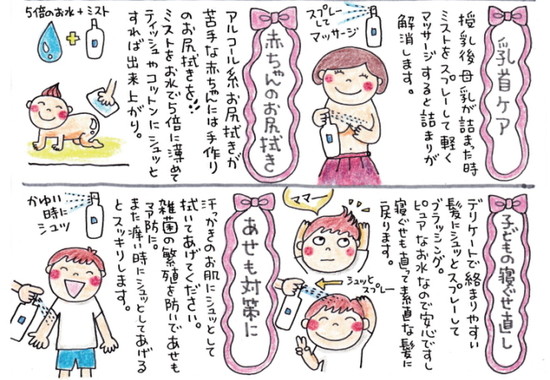 乳首ケア
授乳後母乳が詰まった時
ミストをスプレーして軽く
マッサージすると詰まりが
解消します。
スプレーして
マッサージ
赤ちゃんのお尻拭き
アルコール系お尻拭きが
苦手な赤ちゃんには手作り
のお尻拭きを!!
ミストをお水で5倍に薄めて
ティッシュやコットンにシュッと
すれば出来上がり。
5倍のお水+ミスト
子どもの寝ぐせ直し
デリケートで絡まりやすい
髪にシュッとスプレーして
ブラッシング。
ピュアなお水なので安心ですし
寝ぐせも直って素直な髪に
戻ります。
ママー
シュッと
スプレー
あせも対策に
汗っかきのお肌にシュッとして
拭いてあげてください。
雑菌の繁殖を防いであせも
予防に。
また痒い時にシュッとしてあげる
とスッキリします。
かゆい
時に
シュッ